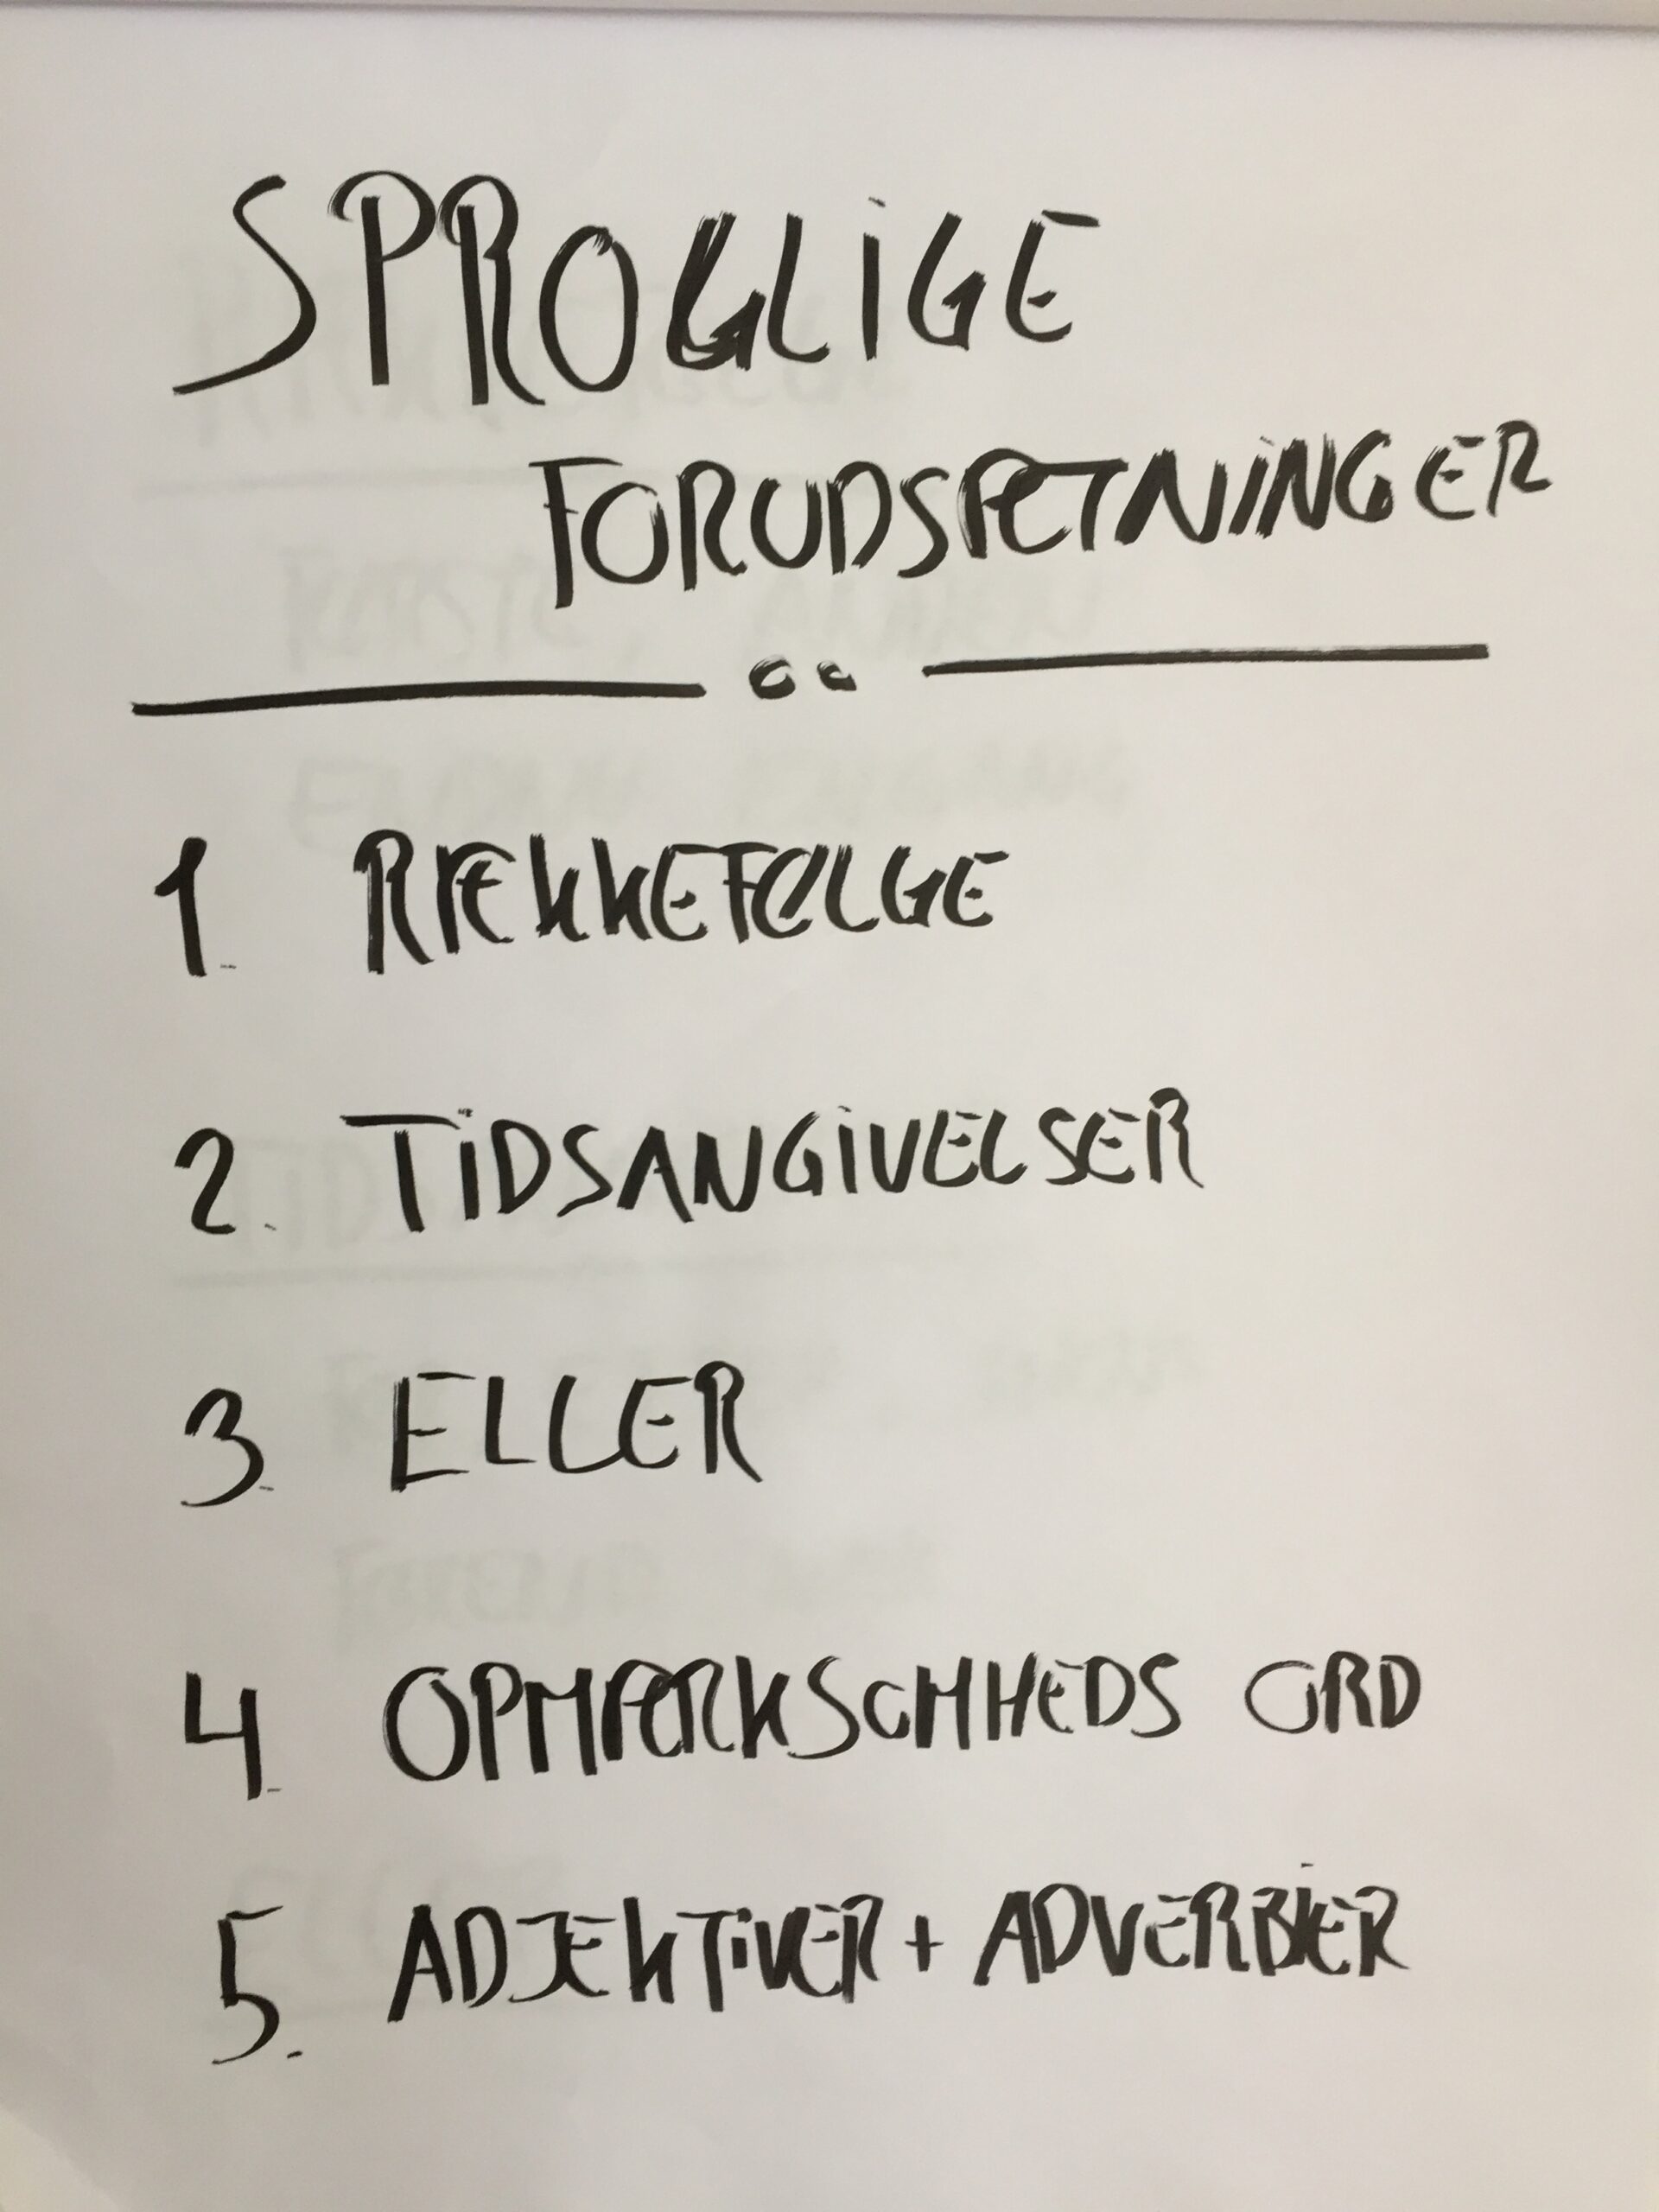 SPROGLIGE
FORUDSÆTNINGER
1. RÆKKEFØLGE
2. TIDSANGIVELSER
3. ELLER
4. OPMÆRKSOMHEDS ORD
5. ADJEKTIVER + ADVERBIER